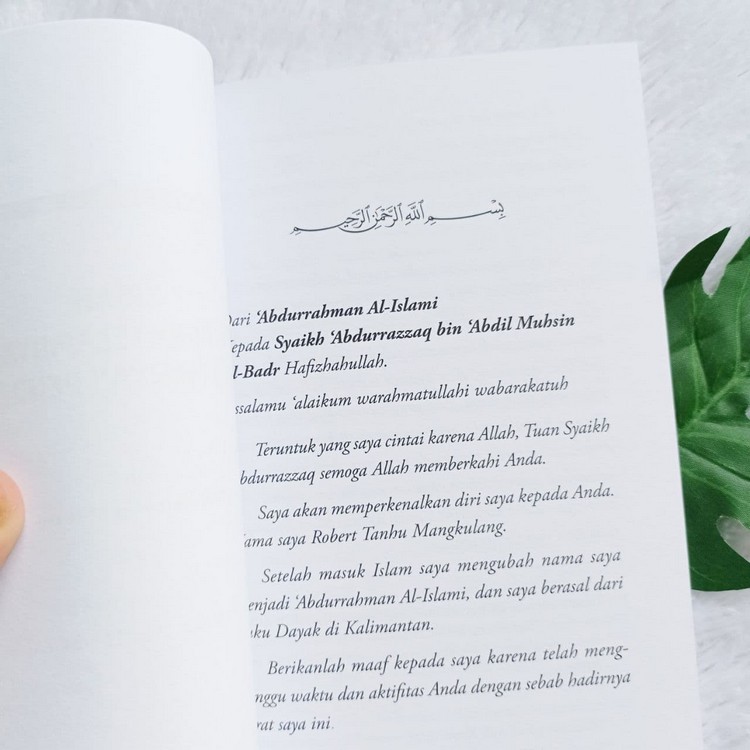 بِسْمِ اللَّهِ الرَّحْمَنِ الرَّحِيمِ
Dari ‘Abdurrahman Al-Islami
epada Syaikh ‘Abdurrazzaq bin ‘Abdil Muhsin
l-Badr Hafizhahullah.
ssalamu ‘alaikum warahmatullahi wabarakatuh
Teruntuk yang saya cintai karena Allah, Tuan Syaikh
bdurrazzaq semoga Allah memberkahi Anda.
Saya akan memperkenalkan diri saya kepada Anda.
ama saya Robert Tanhu Mangkulang.
Setelah masuk Islam saya mengubah nama saya
enjadi ‘Abdurrahman Al-Islami, dan saya berasal dari
uku Dayak di Kalimantan.
Berikanlah maaf kepada saya karena telah meng-
nggu waktu dan aktifitas Anda dengan sebab hadirnya
rat saya ini.